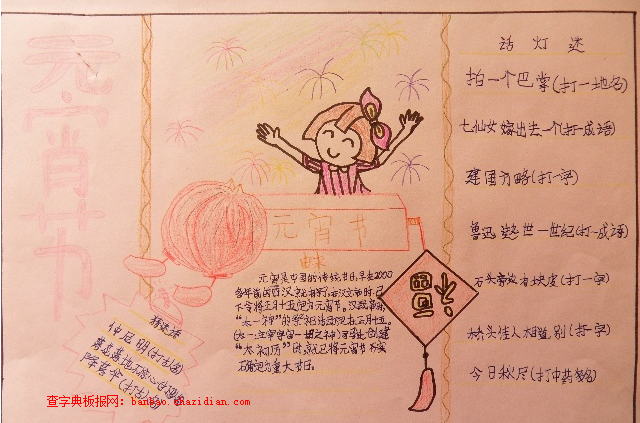 元宵节
元宵节
由来
元宵是中国的传统节日,早在2000
多年前的西汉就有了,
下令将正月十五定为元宵节。汉武帝时,
"太一神"的祭祀活动定在正月十五。
(太一:主宰宇宙一切之神)司马迁创建
"太初历"时,就已将元宵节
确定为重大节日。
话灯迷
拍一个巴掌(打一地名)
七仙女嫁出去一个(打一成语)
建国方略(打一字)
鲁迅 世一世纪(打一成语)
石头旁边有块皮(打一字)
桥头佳人相道别(打一字)
今日秋尽(打中药名)
猜谜语
仲尼明
降落伞(打
查字典板报网:banbao.chazidian.com